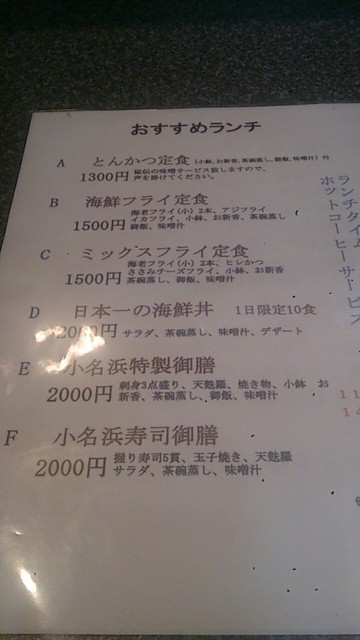 おすすめランチ
A とんかつ定食 (小鉢、お新香、茶碗蒸し、御飯、味噌汁) 付
1300円 秘伝の味噌サービス致しますので、
声を掛けてください。
B 海鮮フライ定食
1500円 海老フライ(小) 2本、アジフライ
イカフライ、小鉢、お新香、茶碗蒸し
御飯、味噌汁
C ミックスフライ定食
1500円 海老フライ(小) 2本、ヒレかつ
ささみチーズフライ、小鉢、お新香
茶碗蒸し、御飯、味噌汁
D 日本一の海鮮丼 1日限定10食
2000円 サラダ、茶碗蒸し、味噌汁、デザート
E 小名浜特製御膳
2000円 刺身3点盛り、天麩羅、焼き物、小鉢 お
新香、茶碗蒸し、御飯、味噌汁
F 小名浜寿司御膳
2000円 握り寿司5貫、玉子焼き、天麩羅
サラダ、茶碗蒸し、味噌汁
ランチタイム
ホットコーヒーサービス
11
14